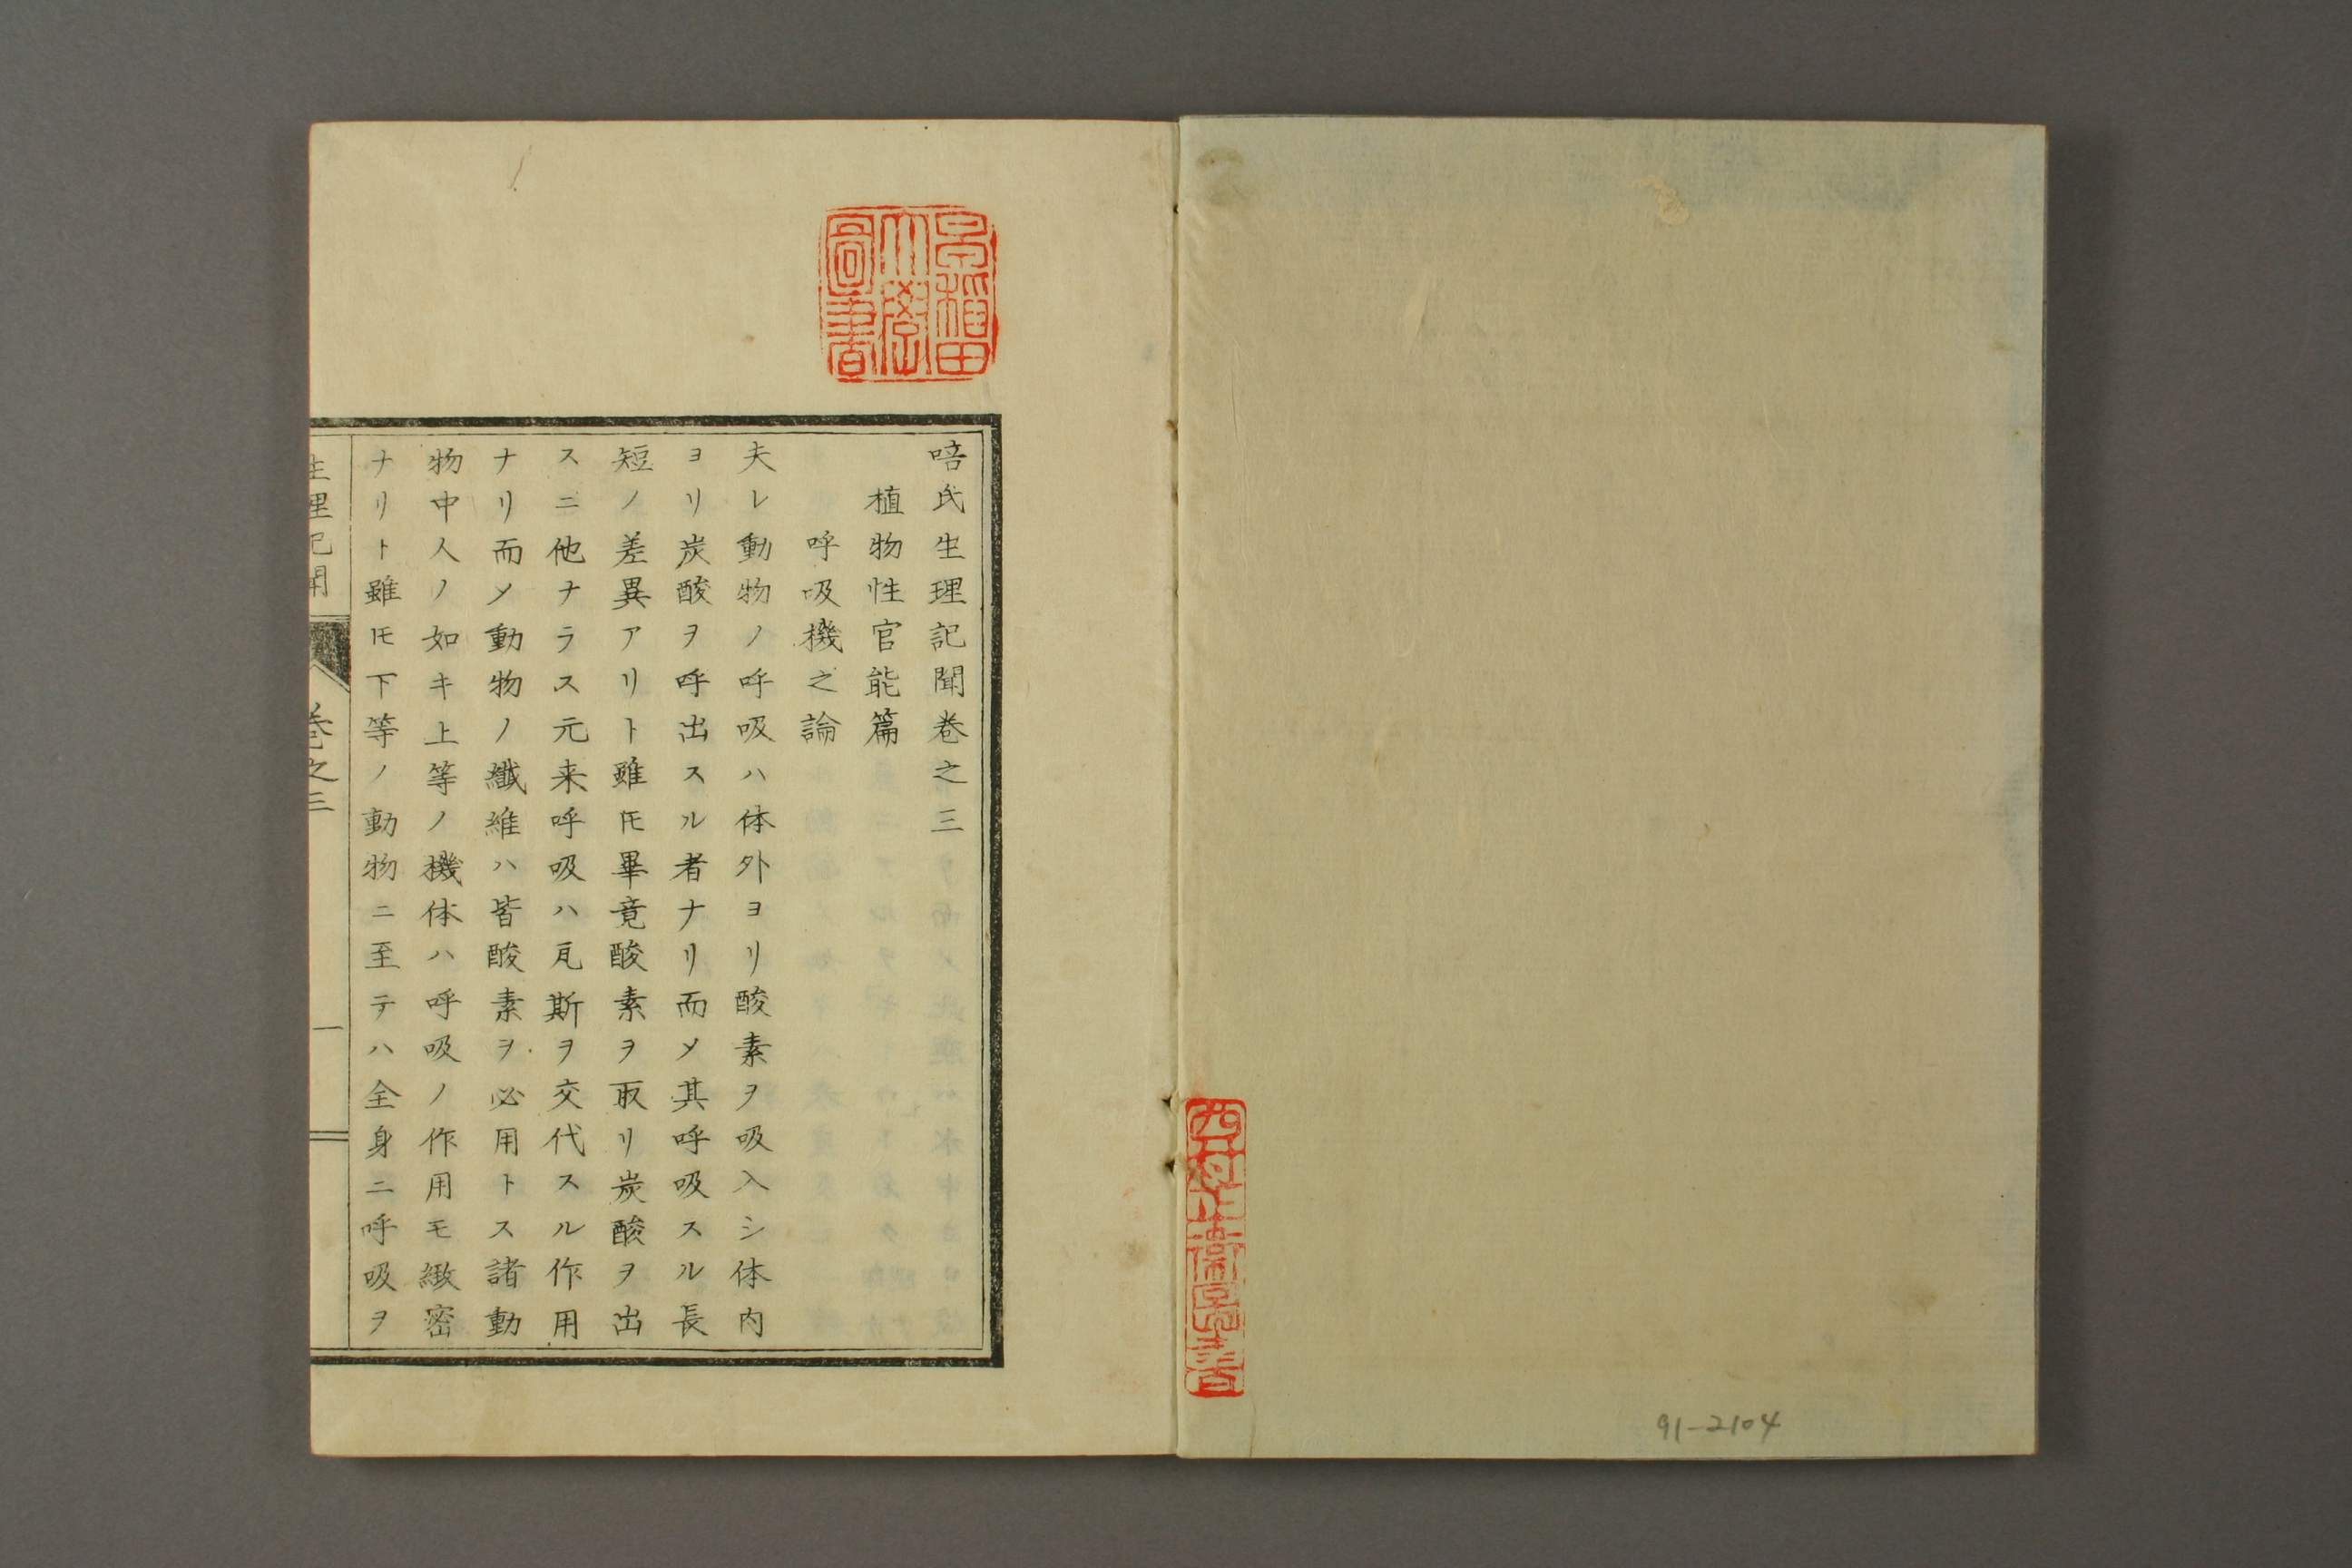 㖣氏生理記聞巻之三
植物性官能篇
呼吸機之論
夫レ動物ノ呼吸ハ体外ヨリ酸素ヲ吸入シ体内
ヨリ炭酸ヲ呼出スル者ナリ而メ其呼吸スル長
短ノ差異アリト雖𪜈畢竟酸素ヲ取リ炭酸ヲ出
スニ他ナラス元来呼吸ハ瓦斯ヲ交代スル作用
ナリ而メ動物ノ纖維ハ皆酸素ヲ必用トス諸動
物中人ノ如キ上等ノ機体ハ呼吸ノ作用モ緻密
ナリト雖𪜈下等ノ動物ニ至テハ全身ニ呼吸ヲ
生理記聞
巻之三
一
早稲田
大學
圖書
91-2104